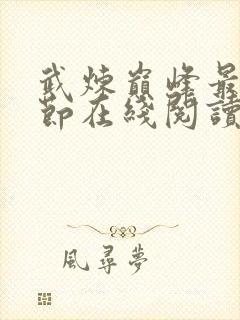 武煉巔峰最
節在綫閱讀
風尋夢